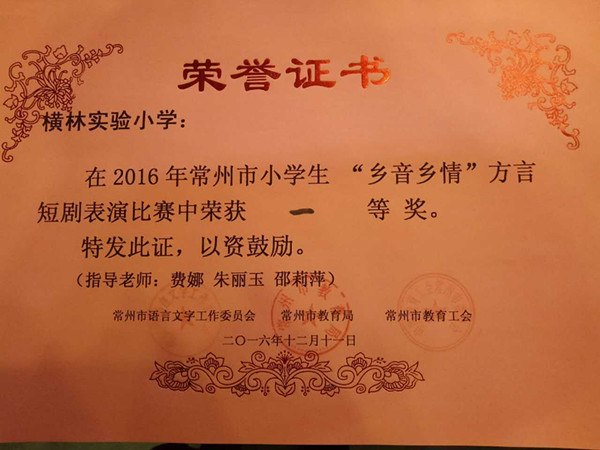 荣誉证书
横林实验小学：
在 2016 年常州市小学生 “乡音乡情”方言
短剧表演比赛中荣获 一 等 奖。
特发此证，以资鼓励。
（指导老师：费娜 朱丽玉 邵莉萍）
常州市语言文字工作委员会 常州市教育局 常州市教育工会
二〇一六年十二月十一日